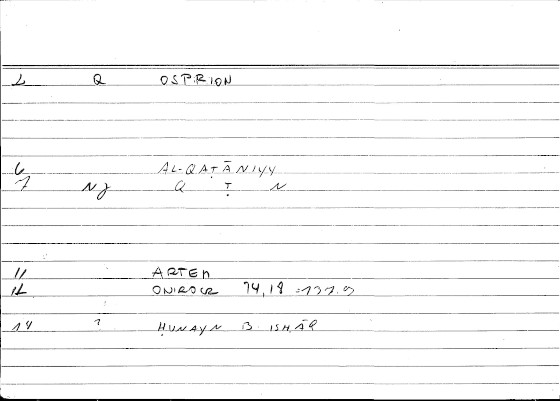 2 Q OSPRION
6 AL-QAṬĀNIYY
7 NJ Q Ṭ N
11 ARTEM
12 ONIROCR 74,18
14 ? ḤUNAYN B ISḤĀQ